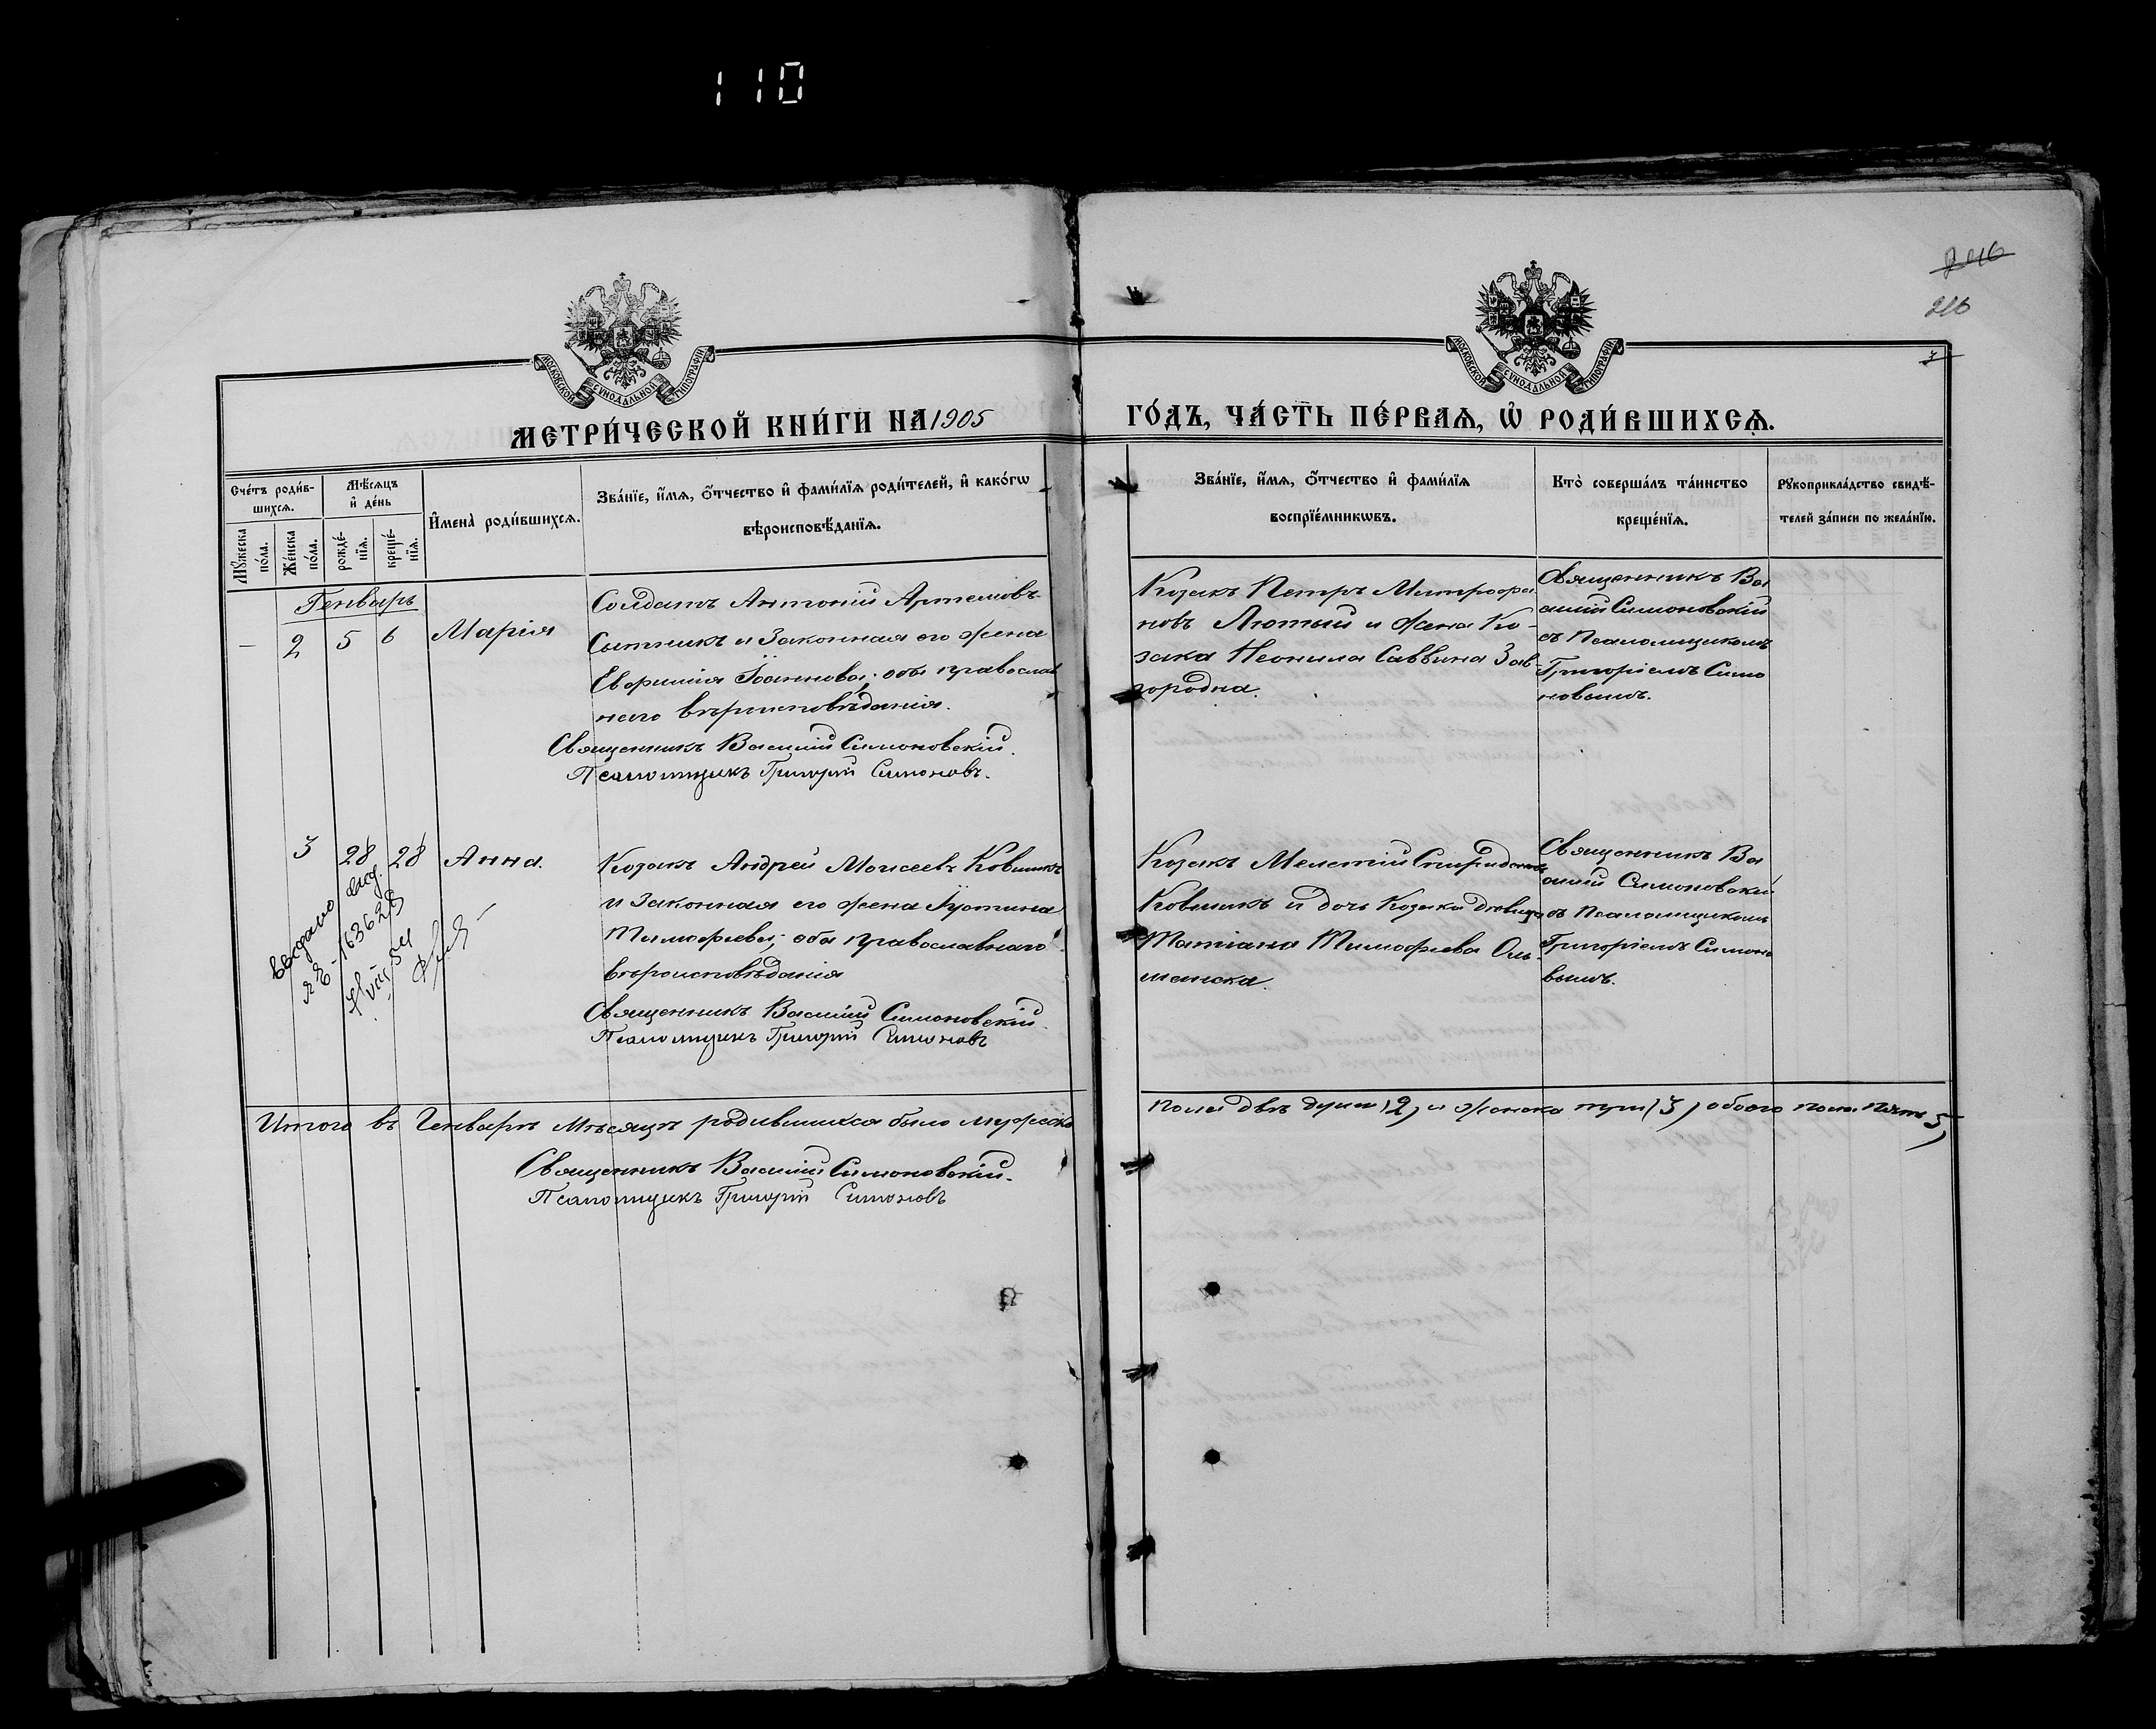 110
246
216
3
МОСКОВСКОЙ СУНОДАЛЬНОЙ ТИПОГРАФІИ
МОСКОВСКОЙ СУНОДАЛЬНОЙ ТИПОГРАФІИ
МЕТРИ́ЧЕСКОЙ КНИ́ГИ НА 1905
ГО́ДЪ, ЧА́СТЬ ПЕ́РВАѦ, Ѡ҆ РОДИ́ВШИХСѦ.
Сче́тъ роди́в-
шихсѧ.
Мꙋ́жеска
по́ла.
Же́нска
по́ла.
Мѣ́сѧцъ
и҆ де́нь
рожде́-
нїѧ.
креще́-
нїѧ.
И҆мена̀ роди́вшихсѧ.
Зва́нїе, и҆́мѧ, ѻ҆́тчество и҆ фами́лїѧ роди́телей, и҆ како́гѡ
вѣроисповѣ́данїѧ.
Зва́нїе, и҆́мѧ, ѻ҆́тчество и҆ фами́лїѧ
воспрїе́мникѡвъ.
Кто̀ соверша́лъ та́инство
креще́нїѧ.
Рꙋкоприкла́дство свидѣ́-
телей за́писи по жела́нїю.
Генварь
- 2 5 6 Марія
Солдатъ Антоній Артемовъ
Сытникъ и законная его жена
Евфимія Іоаннова; оба православ
наго вѣроисповѣданія.
Священникъ Василій Симоновскій.
Псаломщикъ Григорій Симоновъ.
Козакъ Петръ Митрофа
новъ Лютый и жена Ко-
зака Неонила Саввина Зав-
городна.
Священникъ Ва
силій Симоновскій
съ Псаломщикомъ
Григоріемъ Симо
новымъ.
3 28 28 Анна.
выдано
ЯЕ-163628
VIII 54
Козакъ Андрей Моисеевъ Ковшикъ
и законная его жена Іустина
Тимофѣева; оба православнаго
вѣроисповѣданія
Священникъ Василій Симоновскій.
Псаломщикъ Григорій Симоновъ
Козакъ Мелетій Спиридоновъ
Ковшикъ и дочь Козака дѣвица
Татіана Тимофѣева Оль-
шанска.
Священникъ Ва
силій Симоновскій
съ Псаломщикомъ
Григоріемъ Симоно
вымъ.
Итого въ Генварѣ мѣсяцѣ родившихся было мужеска
пола двѣ души (2) и женска три (3) обоего пола пять 5)
Священникъ Василій Симоновскій.
Псаломщикъ Григорій Симоновъ